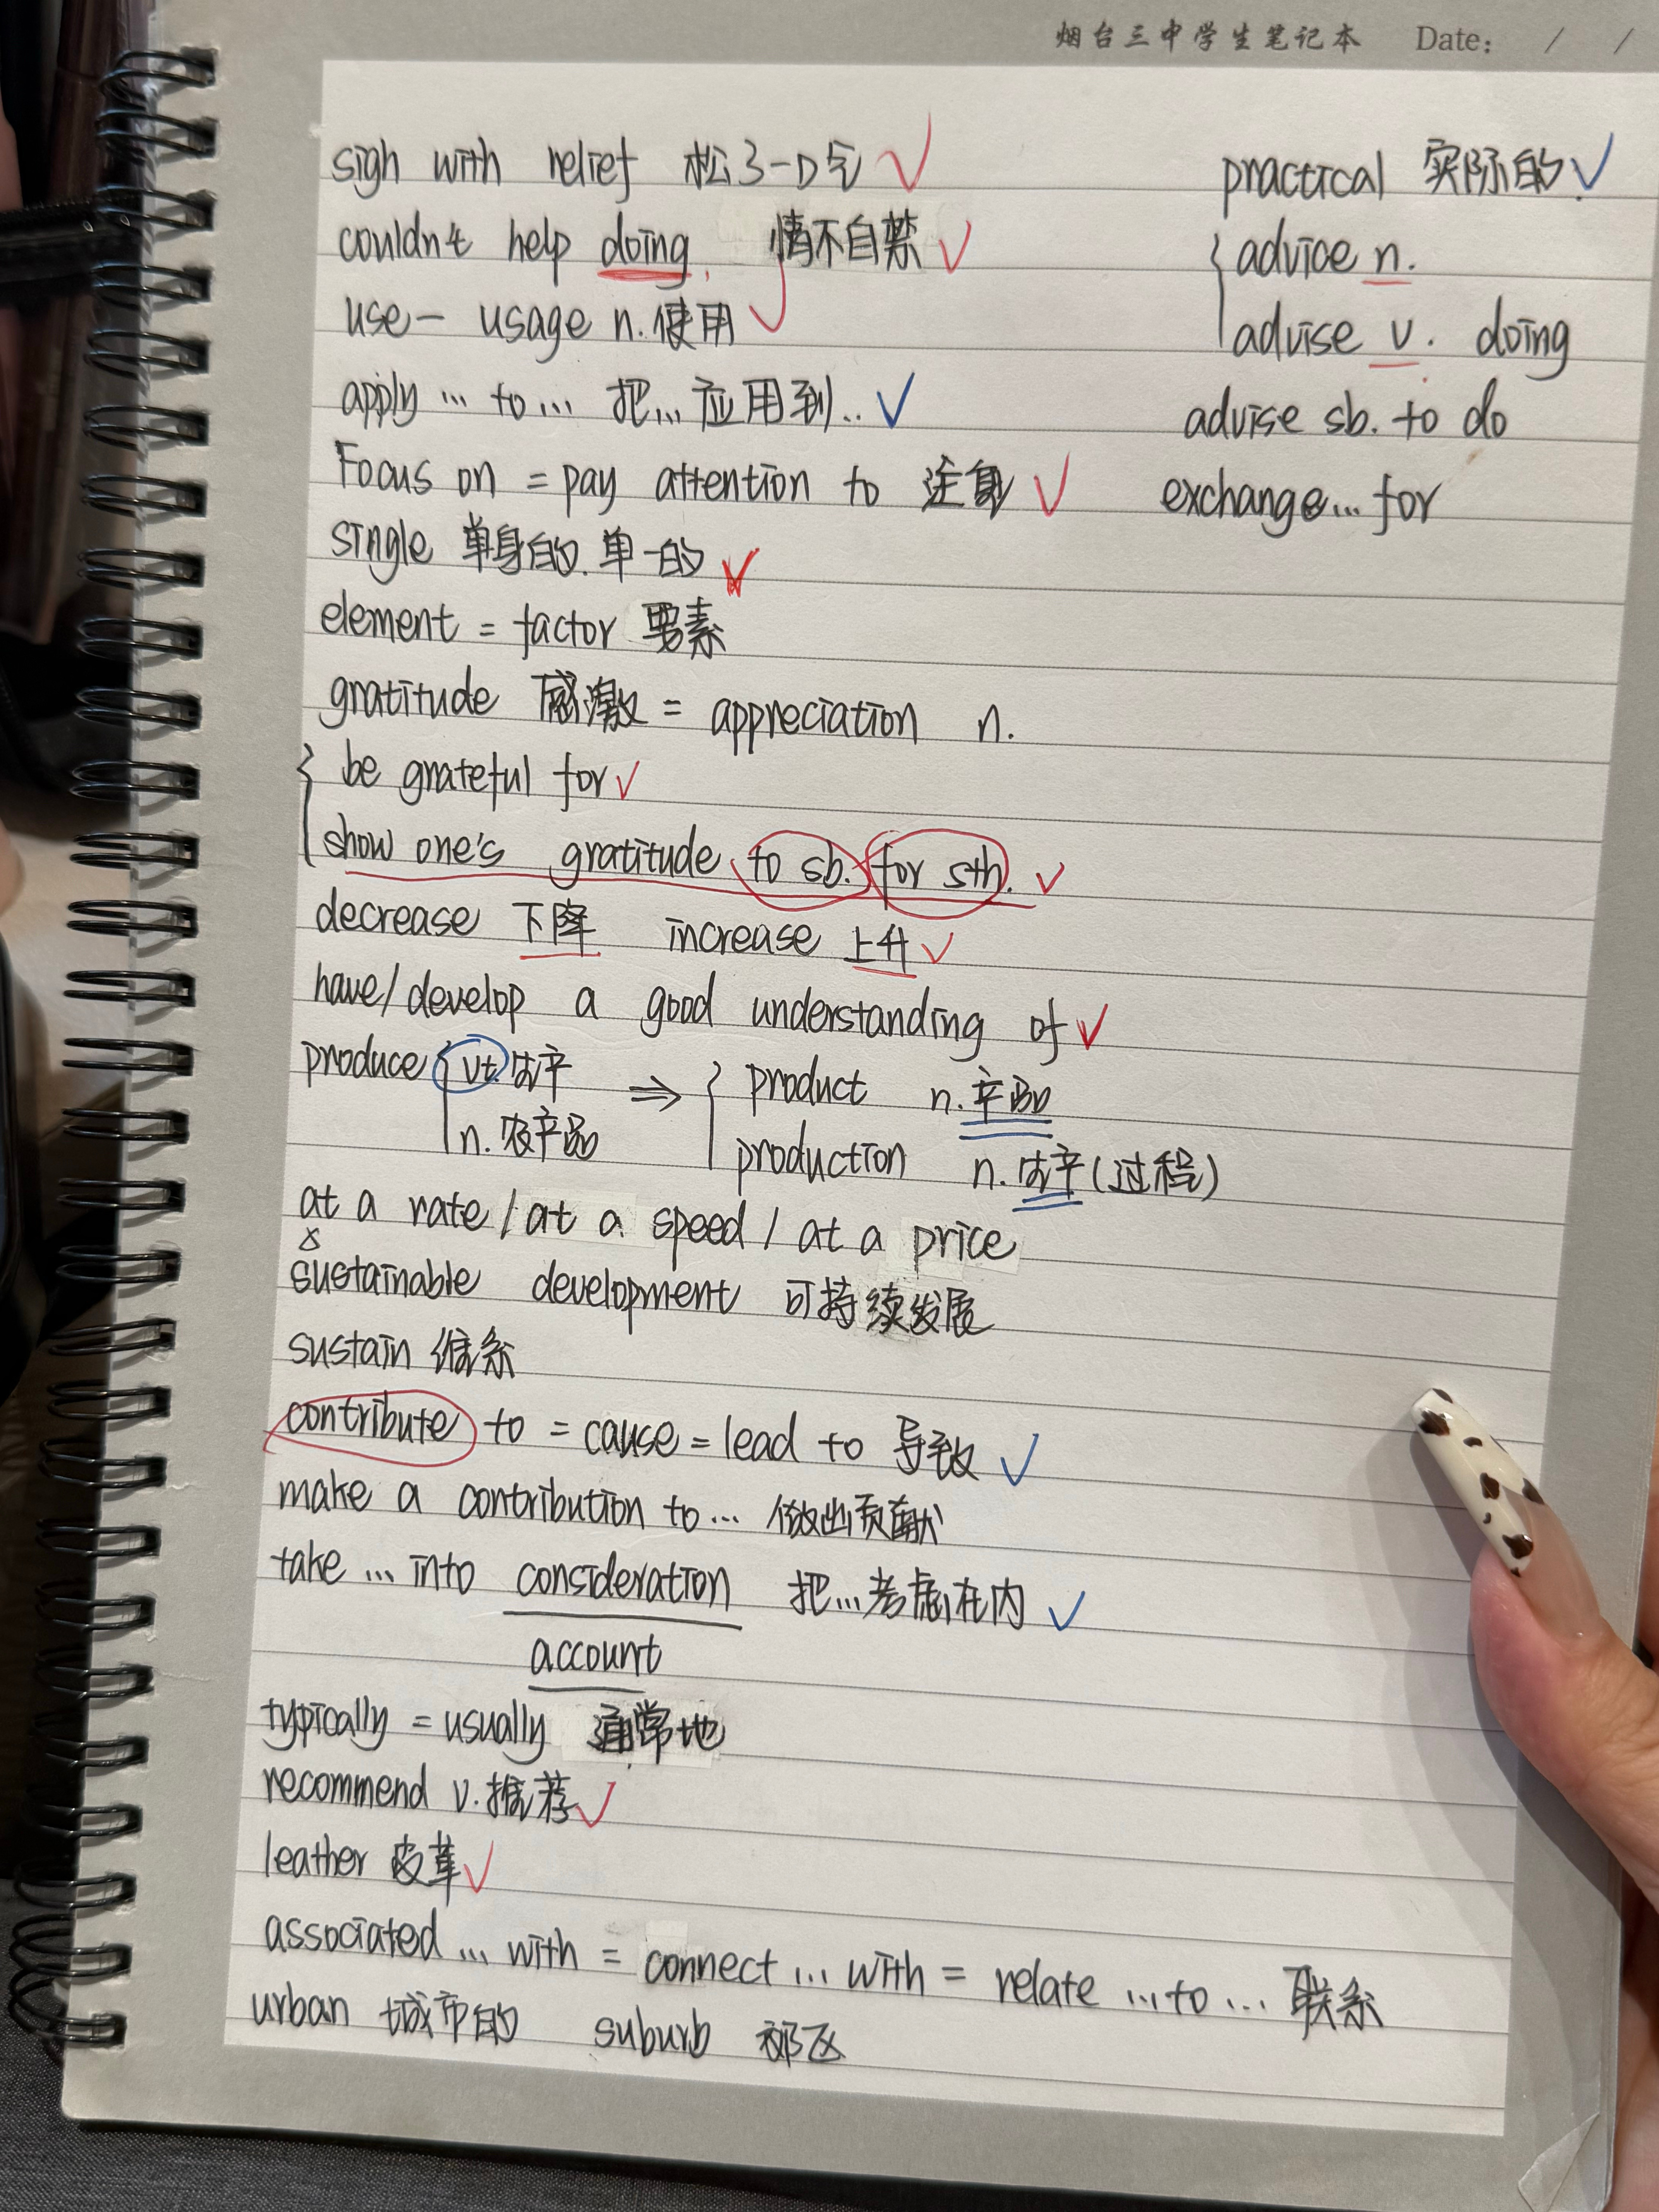 烟台三中学生笔记本 Date: / /
sigh with relief 松了一口气
couldn't help doing 情不自禁
use - usage n. 使用
apply ... to ... 把...应用到..
Focus on = pay attention to 注意
single 单身的.单一的
element = factor 要素
gratitude 感激 = appreciation n.
be grateful for
show one's gratitude to sb. for sth.
decrease 下降 increase 上升
have/develop a good understanding of
produce vt. 生产 ⇒ product n. 产品
n. 农产品 production n. 生产(过程)
at a rate / at a speed / at a price
sustainable development 可持续发展
sustain 维系
contribute to = cause = lead to 导致
make a contribution to ... 做出贡献
take ... into consideration 把...考虑在内
account
typically = usually 通常地
recommend v. 推荐
leather 皮革
associated ... with = connect ... with = relate ... to ... 联系
urban 城市的 suburb 郊区
practical 实际的
advice n.
advise v. doing
advise sb. to do
exchange... for